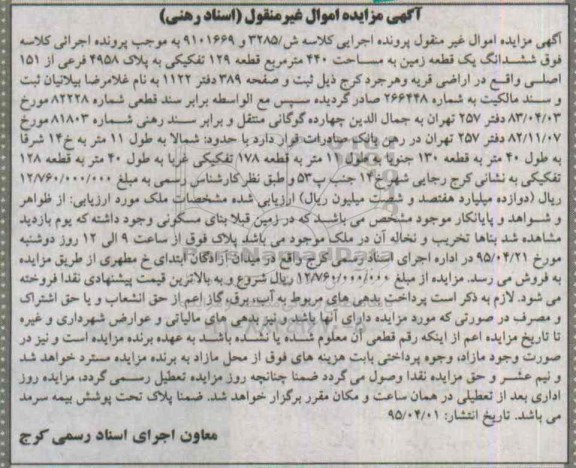 آگهی مزایده اموال غیرمنقول (اسناد رهنی)
آگهی مزایده اموال غیر منقول پرونده اجرایی کلاسه ش/۳۲۸۵ و ۹۱۰۱۶۶۹ به موجب پرونده اجرائی کلاسه
فوق ششدانگ یک قطعه زمین به مساحت ۴۴۰ مترمربع قطعه ۱۲۹ تفکیکی به پلاک ۴۹۵۸ فرعی از ۱۵۱
اصلی واقع در اراضی قریه وهرجرد کرج ذیل ثبت و صفحه ۳۸۹ دفتر ۱۱۲۲ به نام غلامرضا بیلانیان ثبت
و سند مالکیت به شماره ۲۶۶۴۴۸ صادر گردیده سپس مع الواسطه برابر سند قطعی شماره ۸۲۲۲۸ مورخ
۸۳/۰۴/۰۳ دفتر ۲۵۷ تهران به جمال الدین چهارده گوگانی منتقل و برابر سند رهنی شماره ۸۱۸۰۳ مورخ
۸۲/۱۱/۰۷ دفتر ۲۵۷ تهران در رهن بانک صادرات قرار دارد با حدود: شمالا به طول ۱۱ متر به خ۱۴ شرقا
به طول ۴۰ متر به قطعه ۱۳۰ جنوبا به طول ۱۱ متر به قطعه ۱۷۸ تفکیکی غربا به طول ۴۰ متر به قطعه ۱۲۸
تفکیکی به نشانی کرج رجایی شهر خ۱۴ جنب پ۵۳ و طبق نظر کارشناس رسمی به مبلغ ۱۲/۷۶۰/۰۰۰/۰۰۰
ریال (دوازده میلیارد هفتصد و شصت میلیون ریال) ارزیابی شده مشخصات ملک مورد ارزیابی: از ظواهر
و شواهد و پایانکار موجود مشخص می باشد که در زمین قبلا بنای مسکونی وجود داشته که یوم بازدید
مشاهده شد بناها تخریب و نخاله آن در ملک موجود می باشد پلاک فوق از ساعت ۹ الی ۱۲ روز دوشنبه
مورخ ۹۵/۰۴/۲۱ در اداره اجرای اسناد رسمی کرج واقع در میدان آزادگان ابتدای خ مطهری از طریق مزایده
به فروش می رسد. مزایده از مبلغ ۱۲/۷۶۰/۰۰۰/۰۰۰ ریال شروع و به بالاترین قیمت پیشنهادی نقدا فروخته
می شود. لازم به ذکر است پرداخت بدهی های مربوط به آب، برق، گاز اعم از حق انشعاب و یا حق اشتراک
و مصرف در صورتی که مورد مزایده دارای آنها باشد و نیز بدهی های مالیاتی و عوارض شهرداری و غیره
تا تاریخ مزایده اعم از اینکه رقم قطعی آن معلوم شده یا نشده باشد به عهده برنده مزایده است و نیز در
صورت وجود مازاد، وجوه پرداختی بابت هزینه های فوق از محل مازاد به برنده مزایده مسترد خواهد شد
و نیم عشر و حق مزایده نقدا وصول می گردد ضمنا چنانچه روز مزایده تعطیل رسمی گردد، مزایده روز
اداری بعد از تعطیلی در همان ساعت و مکان مقرر برگزار خواهد شد. ضمنا پلاک تحت پوشش بیمه سرمد
می باشد. تاریخ انتشار: ۹۵/۰۴/۰۱
معاون اجرای اسناد رسمی کرج